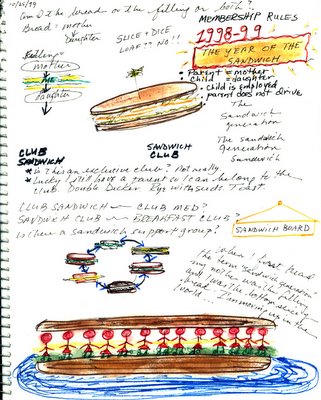 10/25/99
Am I the bread or the filling or both?
Bread: mother
Daughter
SLICE + DICE
LOAF?? NO!!
MEMBERSHIP RULES
1998-99
THE YEAR OF THE
SANDWICH
mother
me
daughter
• Parent = mother
• Child = daughter
• Child is employed
• parent does not drive
The
Sandwich
generation
The sandwich
generation
Sandwich
CLUB
SANDWICH
SANDWICH
CLUB
* Is this an exclusive club? Not really
* Lucky I still have a parent so I can belong to the
club. Double Decker Rye with seeds. Toast.
CLUB SANDWICH — CLUB MED?
SANDWICH CLUB — BREAKFAST CLUB?
Is there a sandwich support group?
SANDWICH BOARD
When I first heard
the term sandwich generation
my mother was the filling
and I was the bottom piece of
bread.
world. I'm moving up in the